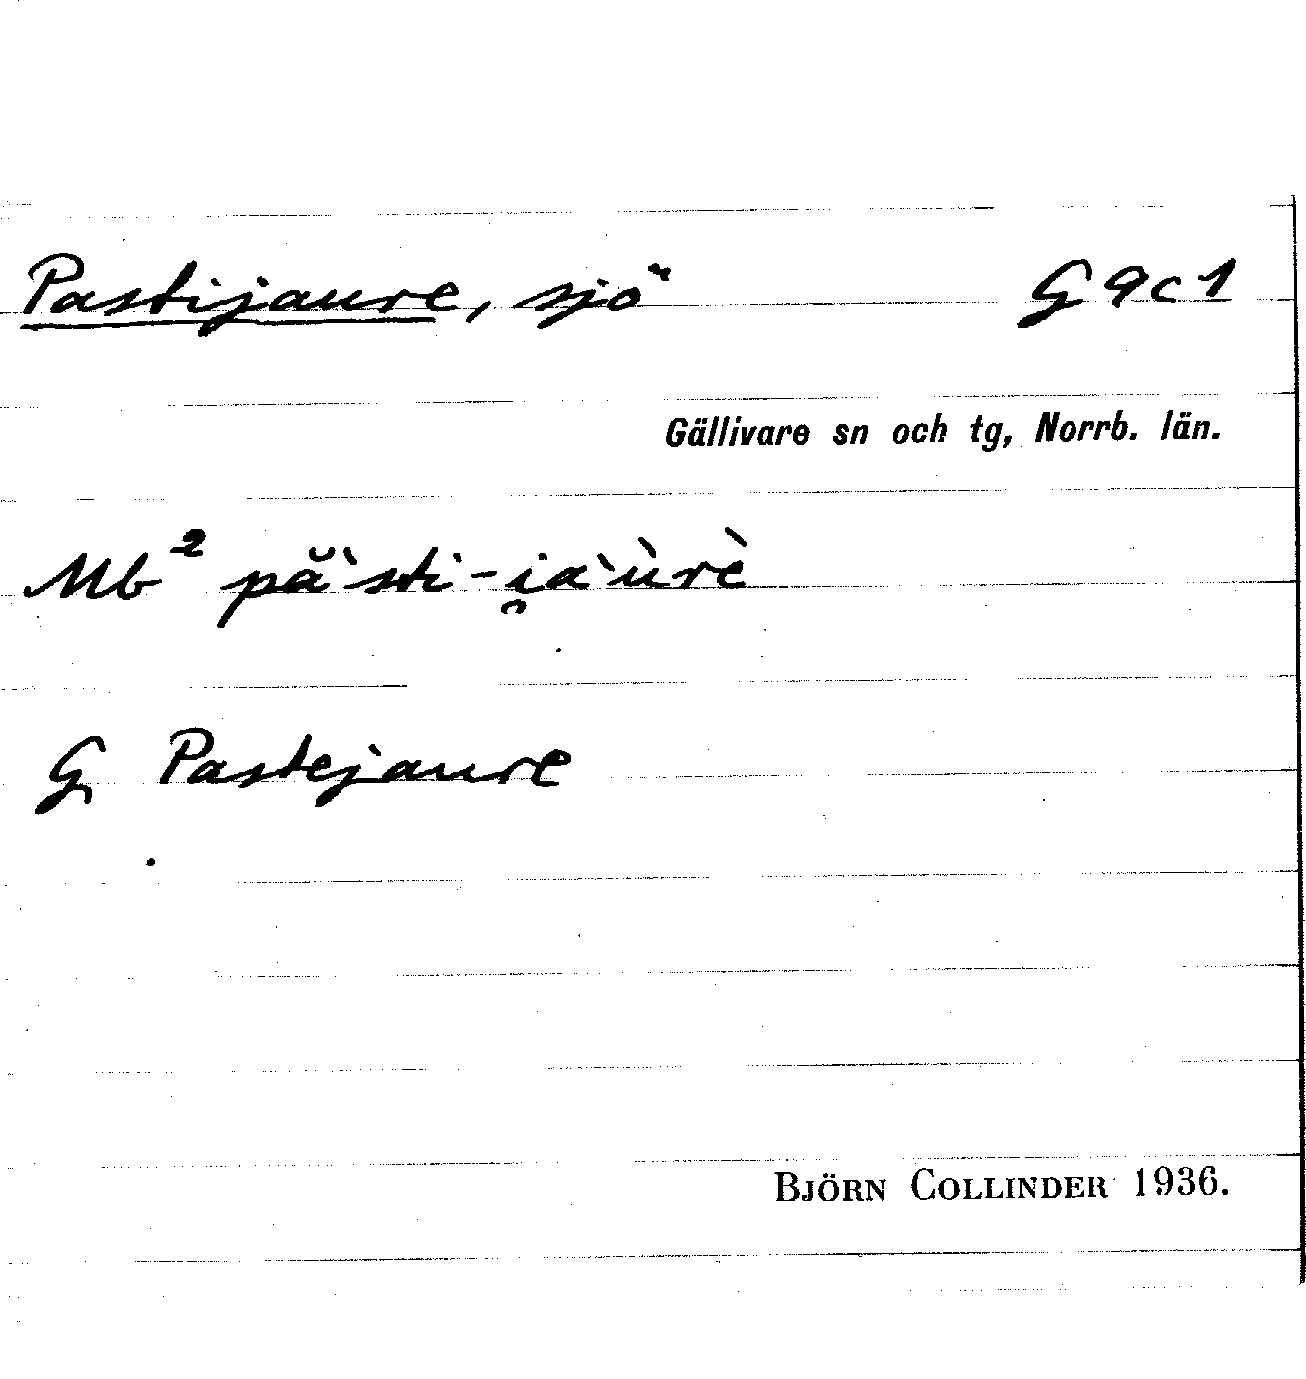 Pastijaure, sjö G 9 c 1
Gällivare sn och tg, Norrb. län.
Mb² pă`sti-i̯a`ùrè
G Pastejaure
BJÖRN COLLINDER 1936.